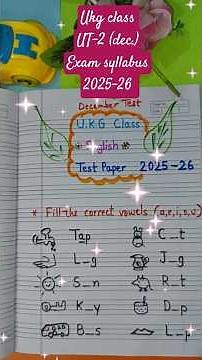 Ukg class
UT-2 (dec.)
Exam syllabus
2025-26
December Test
U.K.G Class
English
Test Paper 2025-26
* Fill the correct vowels (a,e,i,o,u)
Tap C_t
L_g J_g
S_n R_t
K_y D_p
B_s L_p